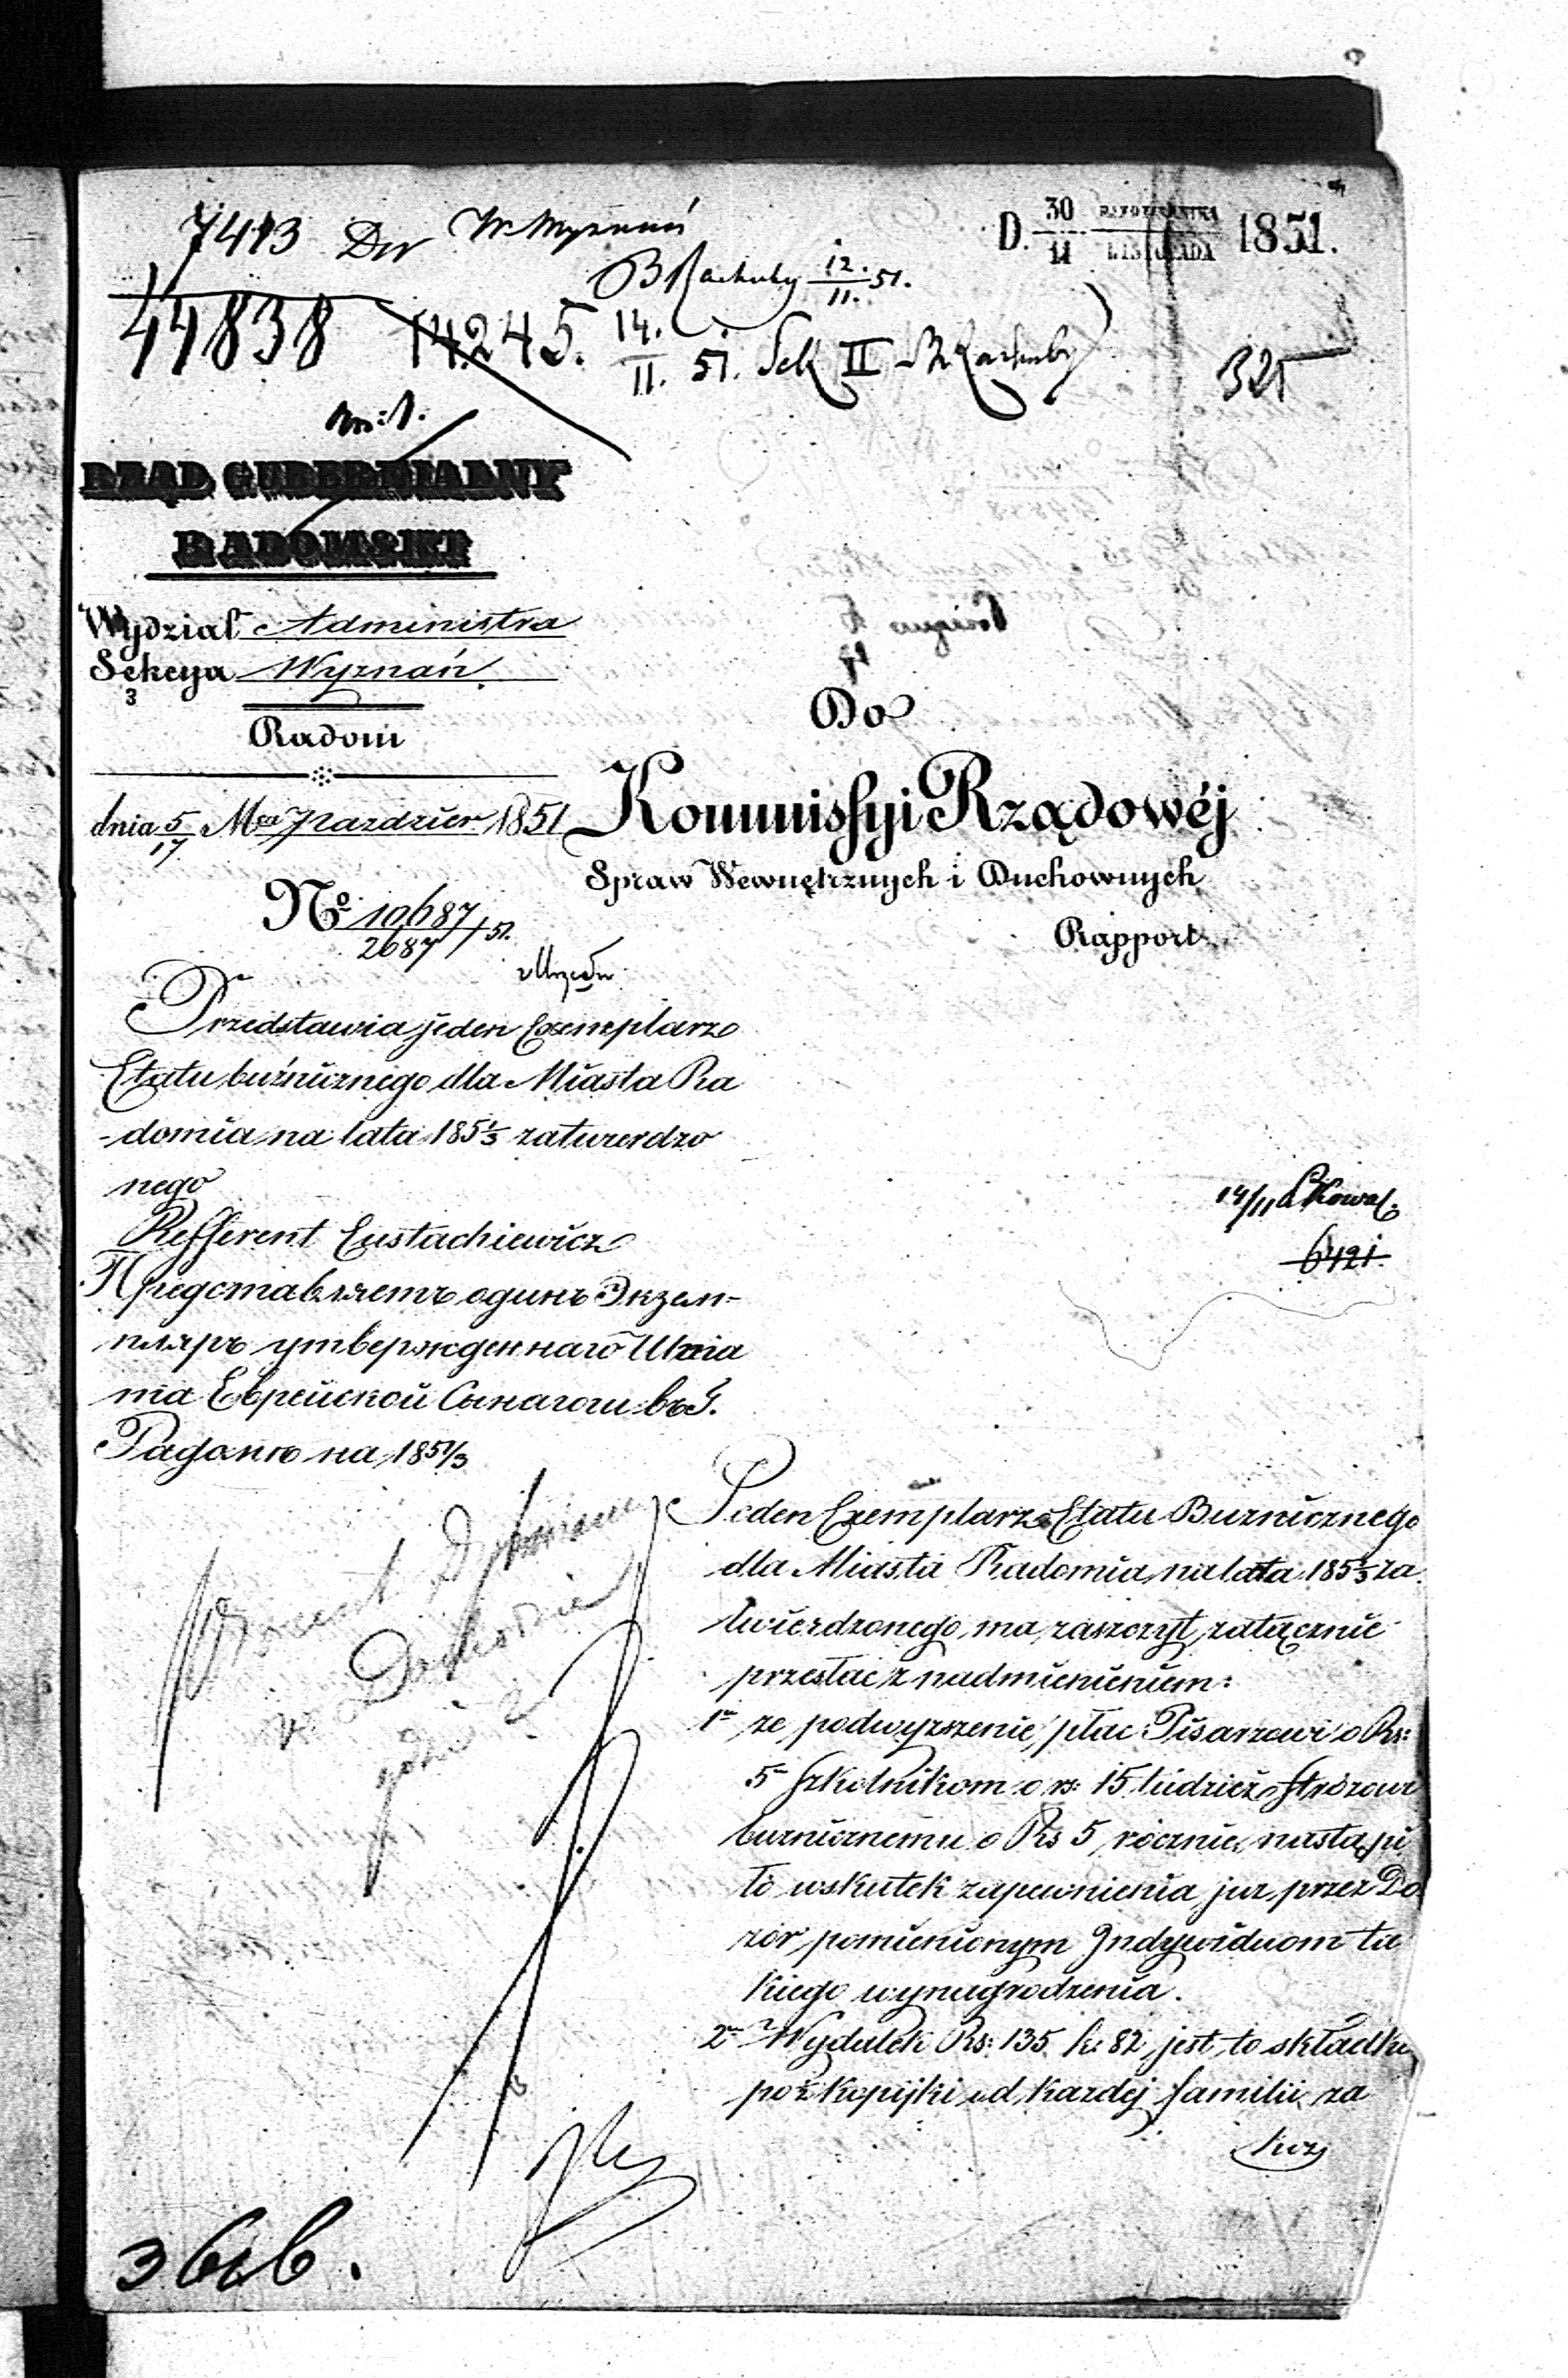 7413 Dw W. Wyznań
D. 30/11 PAŹDZIERNIKA/LISTOPADA 1851.
B Rachuby 12/11. 51.
44838 14245. 14./11. 51. Sek II
325
RZĄD GUBERNIALNY
RADOMSKI
Wydział Administra
Sekcya Wyznań
3
Radom
dnia 5/17 Mca Pazdzier 1851
No 10687/2687 /51.
Do
Kommissyi Rządowéj
Spraw Wewnętrznych i Duchownych
Rapport
Przedstawia jeden Exemplarz
Etatu buźnicznego dla Miasta Ra
-domia na lata 185 1/3 zatwierdzo
nego
Refferent Eustachiewicz
Представляетъ одинъ Экзем-
пляръ утвержденнаго Шта
та Еврейской Сынагоги въ Г.
Радомѣ на 1851/3
14/11 Kowal.
6421.
Jeden Exemplarz Etatu Buznicznego
dla Miasta Radomia na lata 185 1/3 za
twierdzonego, ma zaszczyt załącznie
przesłać z nadmienieniem:
1o ze podwyzszenie płac Pisarzowi o Rs:
5 Szkolnikom o rs: 15 tudzież Stróżowi
buznicznemu o Rs 5 rocznie, nastąpi
ło wskutek zapewnienia juz przez Do
zór pomienionym Indywiduom ta
kiego wynagrodzenia.
2o Wydatek Rs: 135 k: 82 jest to składka
po kopijki od kazdej familii za